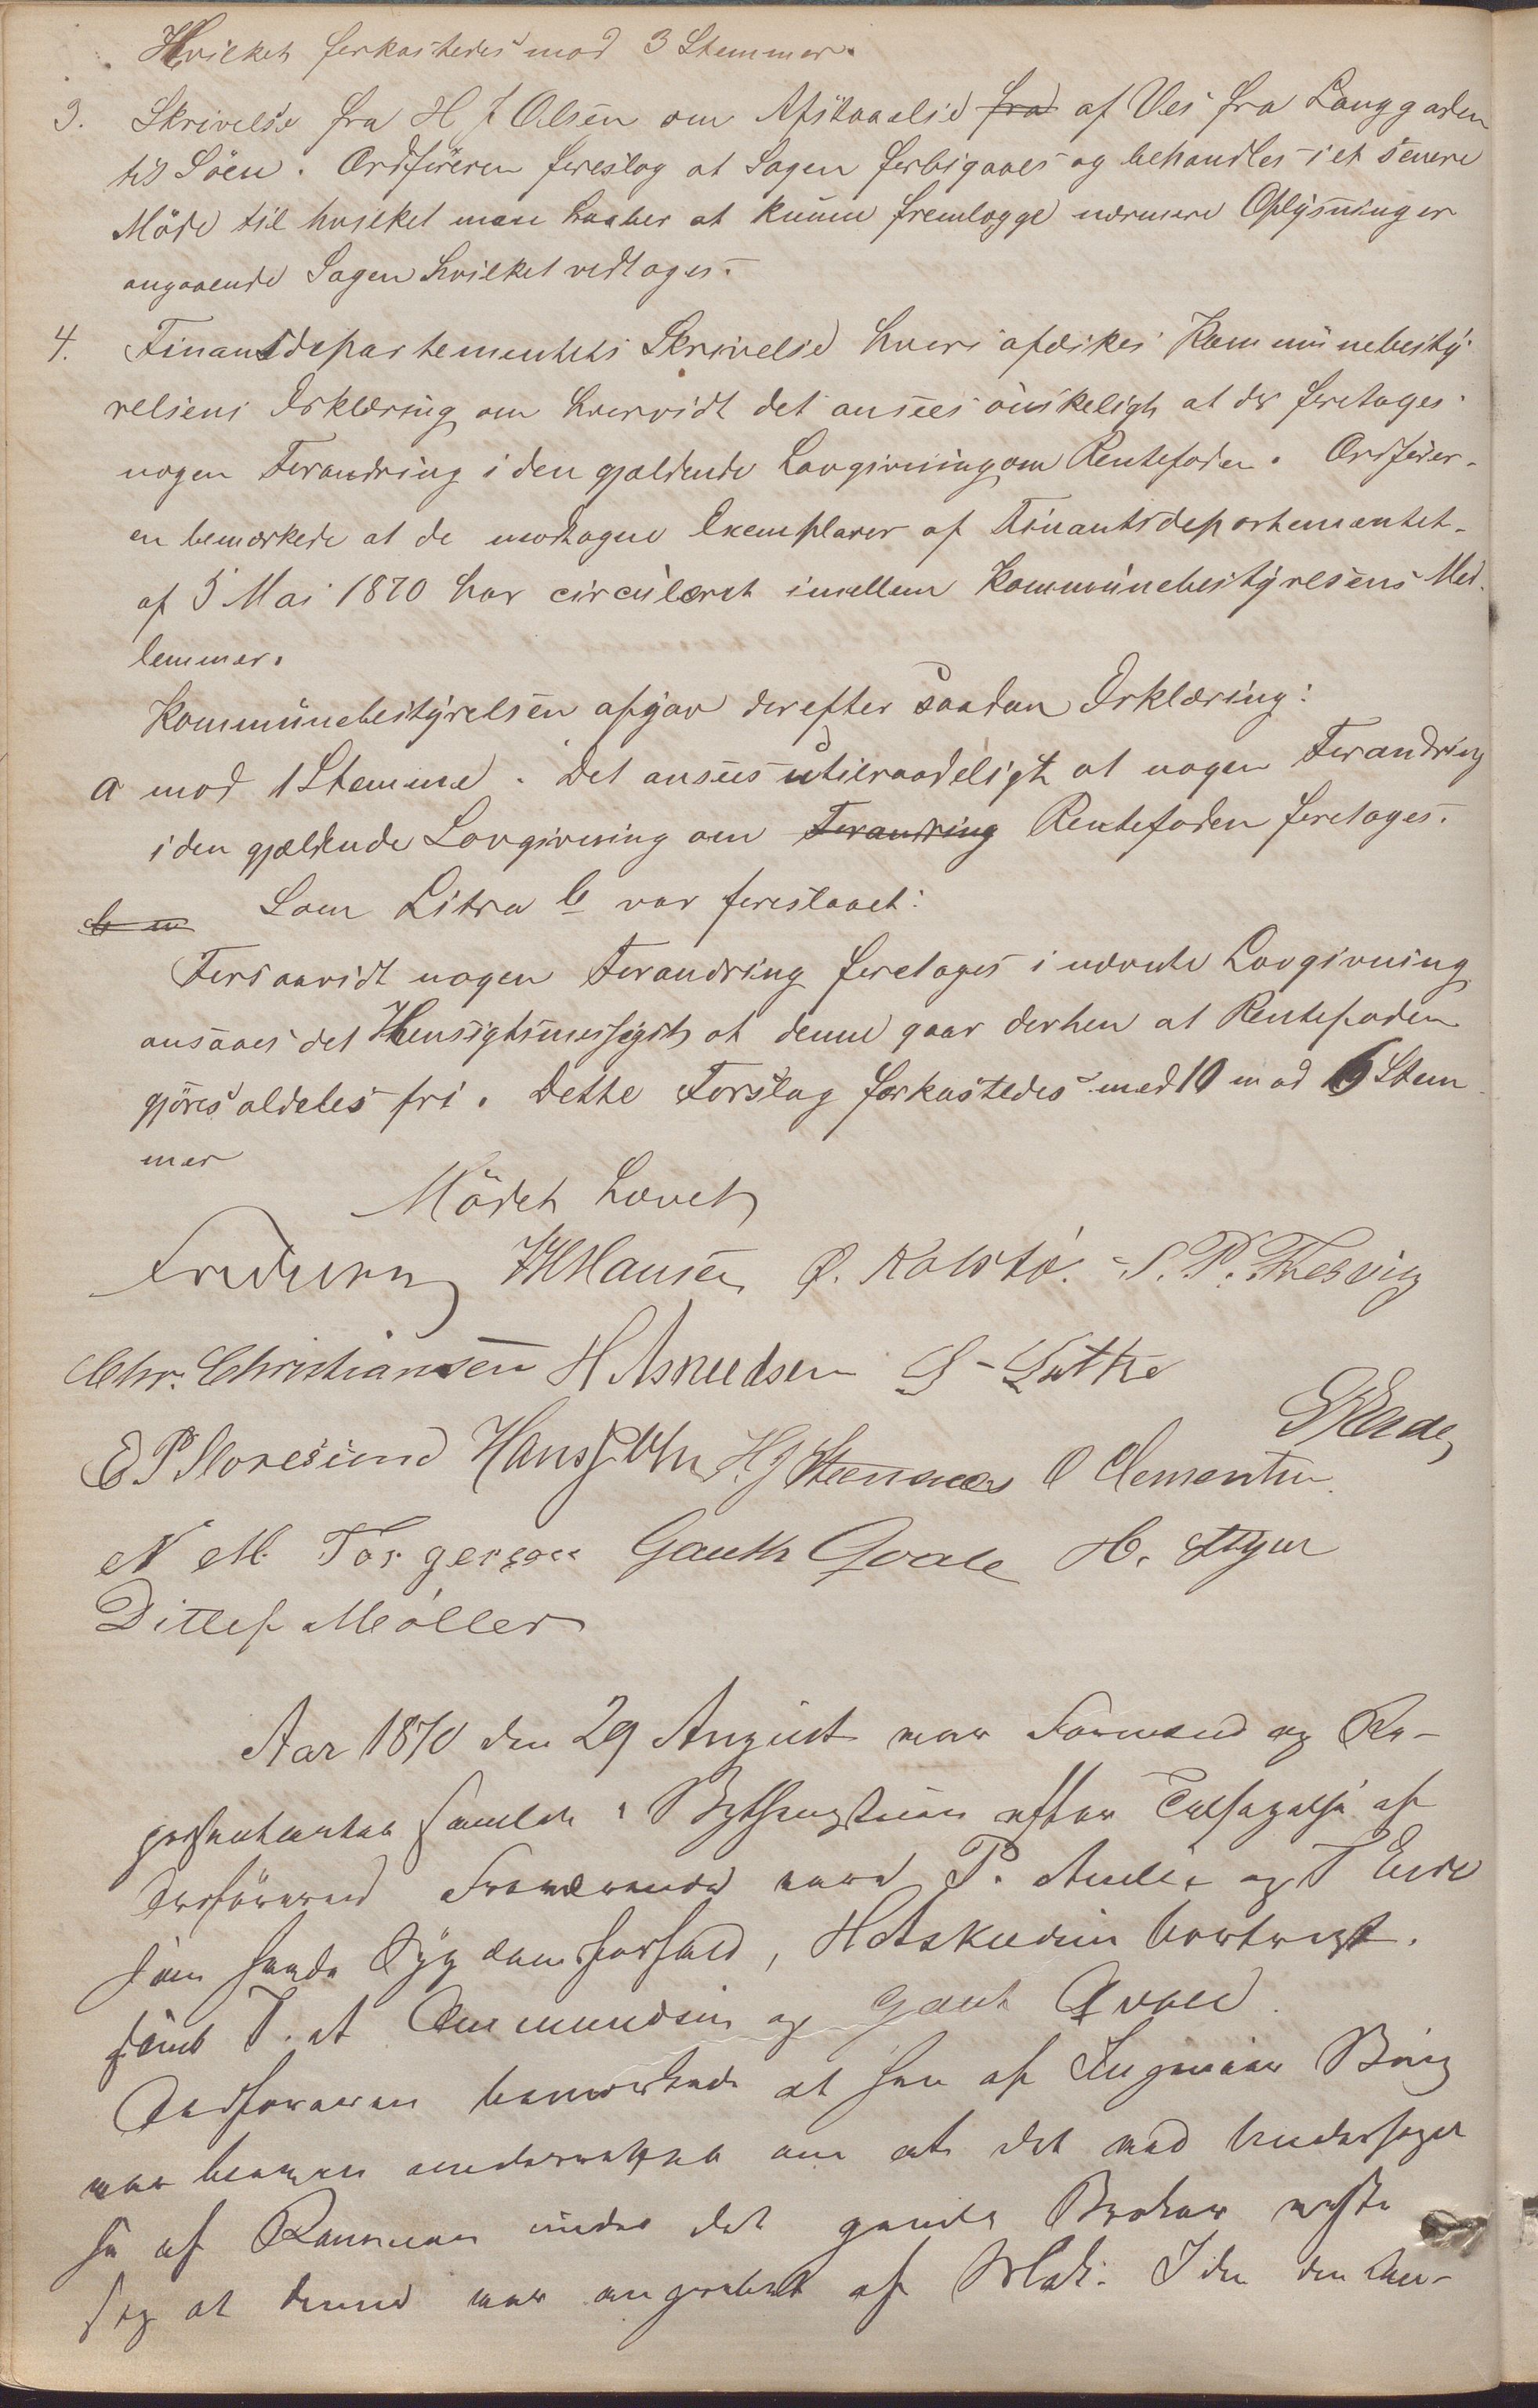 Hvilket forkastedes mod 3 Stemmer.
3. Skrivelse fra H J Olsen om Afstaaelse fra af Vei fra Langgaden
til Söen. Ordföreren foreslog at Sagen forbigaaes og behandles i et senere
Möde til hvilket man haaber at kunne fremlægge nærmere Oplysninger
angaaende Sagen hvilket vedtoges.
4. Finantsdepartementets Skrivelse hvori afæskes Kommunebesty
relsens Erklæring om hvorvidt det ansees önskeligt at der foretages
nogen Forandring i den gjældende Lovgivning om Rentefoden. Ordförer-
en bemærkede at de modtagne Exemplarer af Finantsdepartementet
af 5 Mai 1870 har circuleret imellem Kommunebestyrelsens Med-
lemmer.
Kommunebestyrelsen afgav derefter saadan Erklæring:
a mod 1 Stemme. Det ansees utilraadeligt at nogen Forandring
i den gjældende Lovgivning om Forandring Rentefoden foretages.
b m Som Litra b var foreslaaet:
Forsaavidt nogen Forandring foretages i nævnte Lovgivning
ansaaes det Hensigtsmessigst at denne gaar derhen at Rentefoden
gjöres aldeles fri. Dette Forslag forkastedes med 10 mod 6 Stem
mer
Mödet hævet
HHansen O. Kolstö. S. P. Thesvig
Chr. Christiansen H Asknudsen G Lütke
E P Storesund Hans J H J Steensnæs O Clementsen
N M. Torgersen Gauth Qvale H.
Ditlef Möller
Aar 1870 den 29 August var Formænd og Re-
præsentanter samlet i Bythingstuen efter Tilsigelse af
Ordföreren Fraværende vare P. Amlie og T Eide
som havde Sygdomsforfald, H Asknudsen bortreist.
samt T. A Ammundsen og Gaut Qvale.
Ordföreren bemærkede at han af Ingeniör
var bleven underrettet om at det ved Undersögel
se af Rammen under det gamle Brokar viste
sig at denne var angrebet af Mak. I den An-